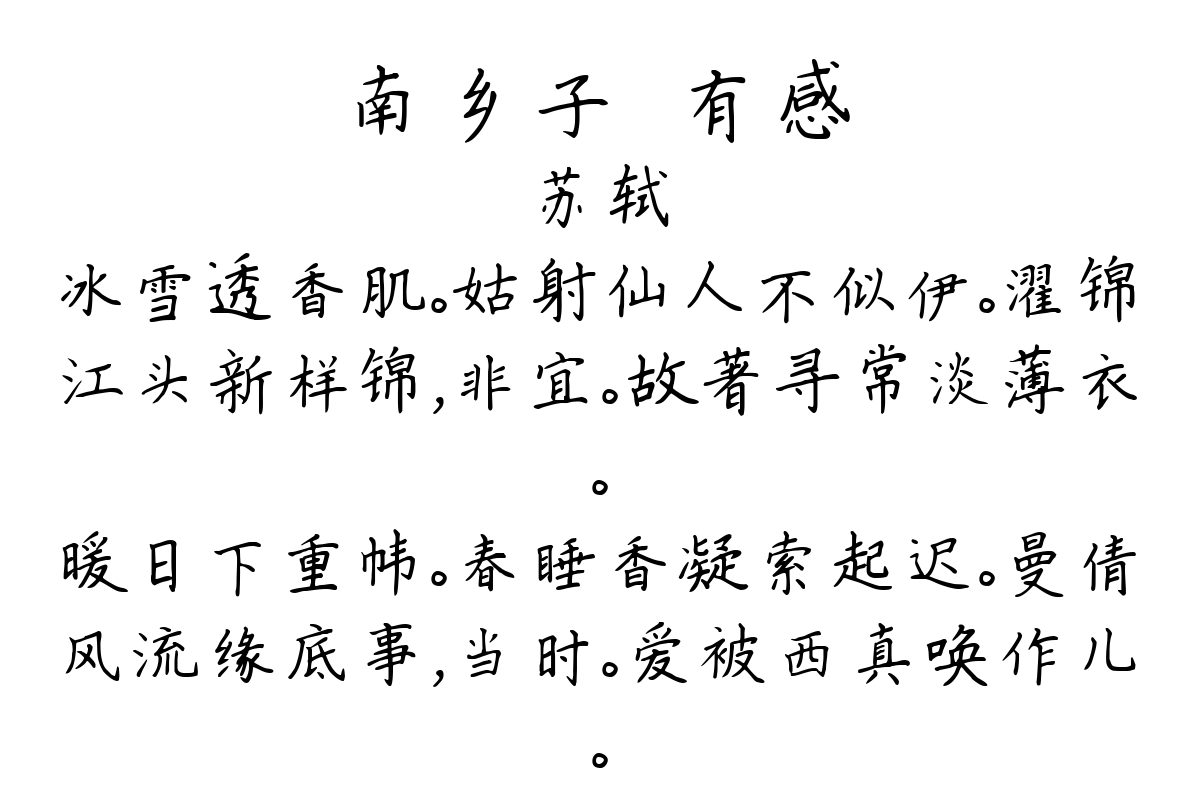 南乡子 有感
苏轼
冰雪透香肌。姑射仙人不似伊。濯锦
江头新样锦,非宜。故著寻常淡薄衣
。
暖日下重帏。春睡香凝索起迟。曼倩
风流缘底事,当时。爱被西真唤作儿
。